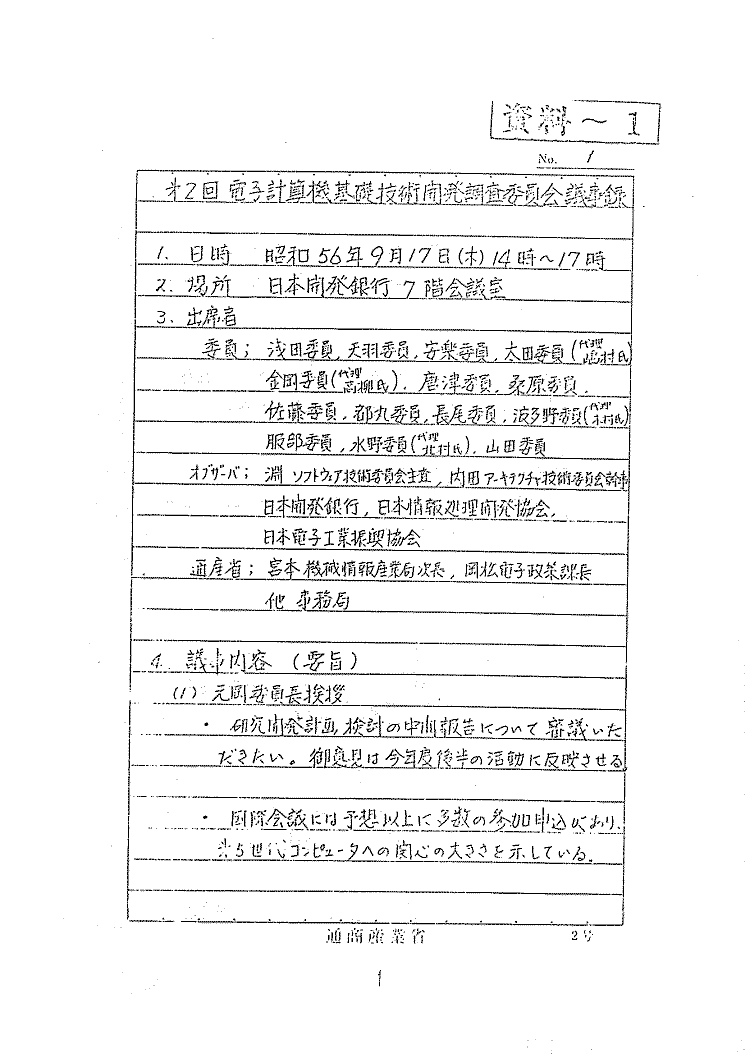 資料~1
No. 1
第2回 電子計算機基礎技術開発調査委員会議事録
1. 日時 昭和56年9月17日(木)14時~17時
2. 場所 日本開発銀行 7階会議室
3. 出席者
委員; 浅田委員, 天羽委員, 安楽委員, 太田委員(代理 嶋村氏)
金岡委員(代理 高柳氏), 唐津委員, 桑原委員,
佐藤委員, 都丸委員, 長尾委員, 波多野委員(代理 木村氏)
服部委員, 水野委員(代理 北村氏), 山田委員
オブザーバ; 淵 ソフトウェア技術委員会主査, 内田アーキテクチャ技術委員会幹事
日本開発銀行, 日本情報処理開発協会,
日本電子工業振興協会
通産省; 宮本機械情報産業局次長, 岡松電子政策課長
他 事務局
4. 議事内容 (要旨)
(1) 元岡委員長挨拶
・ 研究開発計画検討の中間報告について審議いた
だきたい。御意見は今年度後半の活動に反映させる。
・ 国際会議には予想以上に多数の参加申込があり,
第5世代コンピュータへの関心の大きさを示している。
通商産業省 2号
1